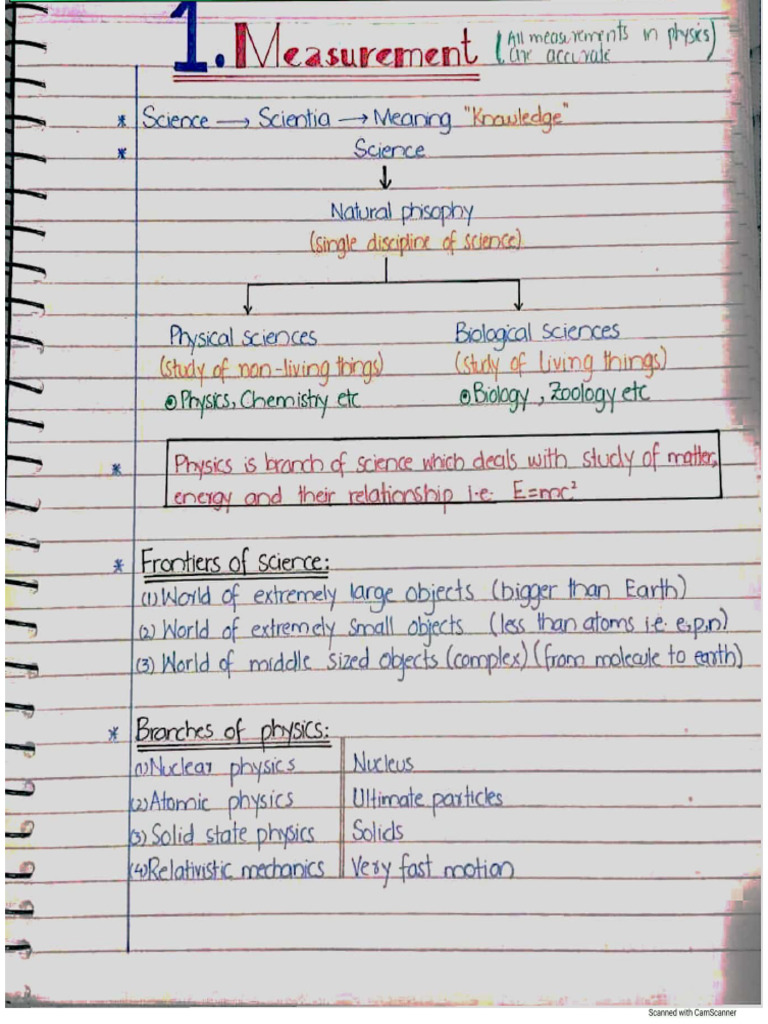 1. Measurement (All measurements in physics
are accurate)
* Science → Scientia → Meaning "Knowledge"
* Science
Natural phisophy
(single discipline of science)
Physical sciences
(study of non-living things)
Physics, Chemistry etc
Biological sciences
(study of living things)
Biology, Zoology etc
* Physics is branch of science which deals with study of matter,
energy and their relationship i.e. E=mc²
* Frontiers of science:
(1) World of extremely large objects (bigger than Earth)
(2) World of extremely small objects (less than atoms i.e. e,p,n)
(3) World of middle sized objects (complex) (from molecule to earth)
* Branches of physics:
(1) Nuclear physics Nucleus
(2) Atomic physics Ultimate particles
(3) Solid state physics Solids
(4) Relativistic mechanics Very fast motion
Scanned with CamScanner